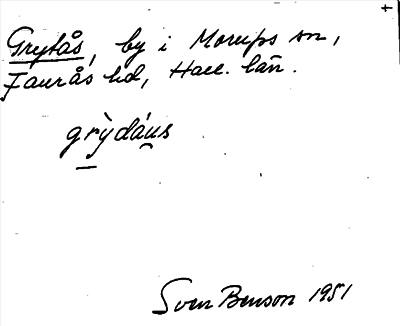 Grytås, by i Morups sn,
Faurås hd, Hall. län.
grỳdáu̯s
Sven Benson 1951